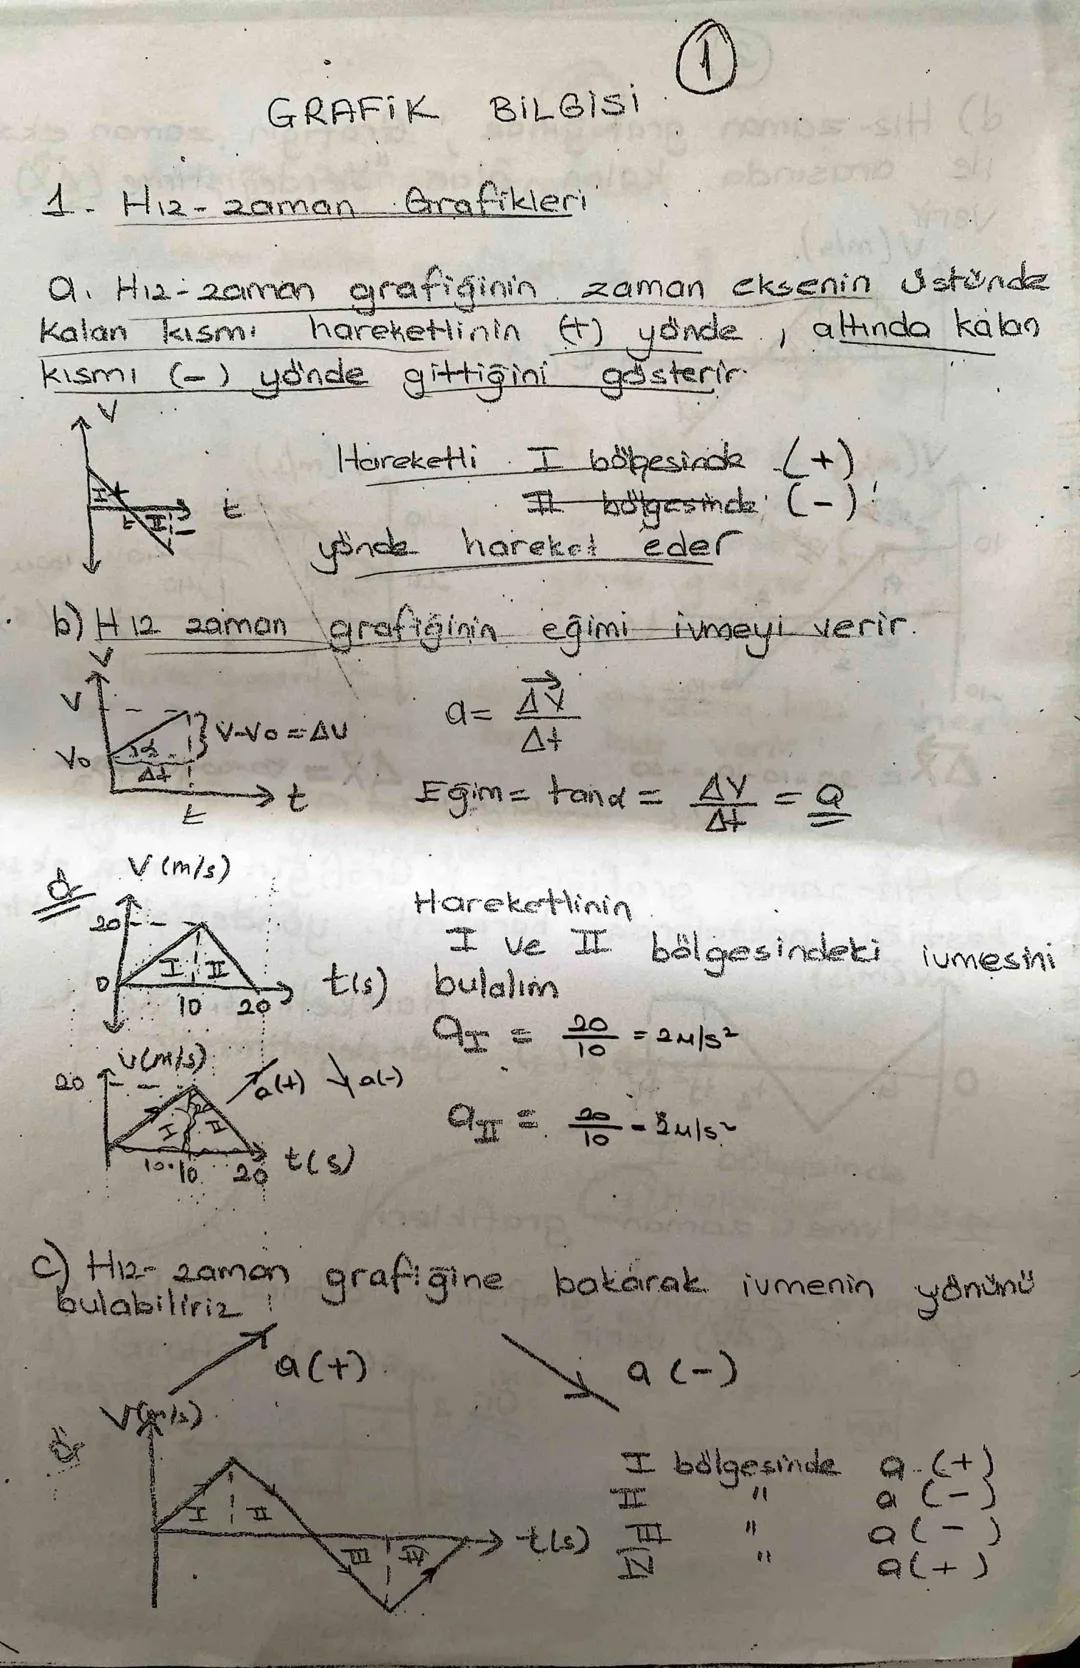 1
GRAFİK BİLGİSİ
1- Hız-zaman Grafikleri
a. Hız-zaman grafiğinin zaman eksenin üstünde
kalan kısmı hareketlinin (+) yönde, altında kalan
kısmı (-) yönde gittiğini gösterir.
V
I + t II -
t
Hareketli I bölgesinde (+)
II bölgesinde (-)
yönde hareket eder
b) Hız zaman grafiğinin eğimi ivmeyi verir.
V
V
V-V0 = ΔV
V0
α
Δt
t
t
a = ΔV/Δt
Eğim = tanα = ΔV/Δt = a
ör
V (m/s)
20
0
I II
10 20
t(s)
Hareketlinin
I ve II bölgesindeki ivmesini
bulalım
aI = 20/10 = 2m/s²
V(m/s)
20
a(+) a(-)
I II
10 10 20
t(s)
aII = 20/10 - 2m/s²
c) Hız-zaman grafiğine bakarak ivmenin yönünü
bulabiliriz
a(+)
a (-)
ör
V(m/s)
I II
III IV
t(s)
I bölgesinde a (+)
II " a (-)
III " a (-)
IV " a(+)